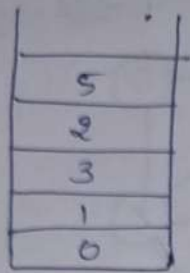 5
2
3
1
0